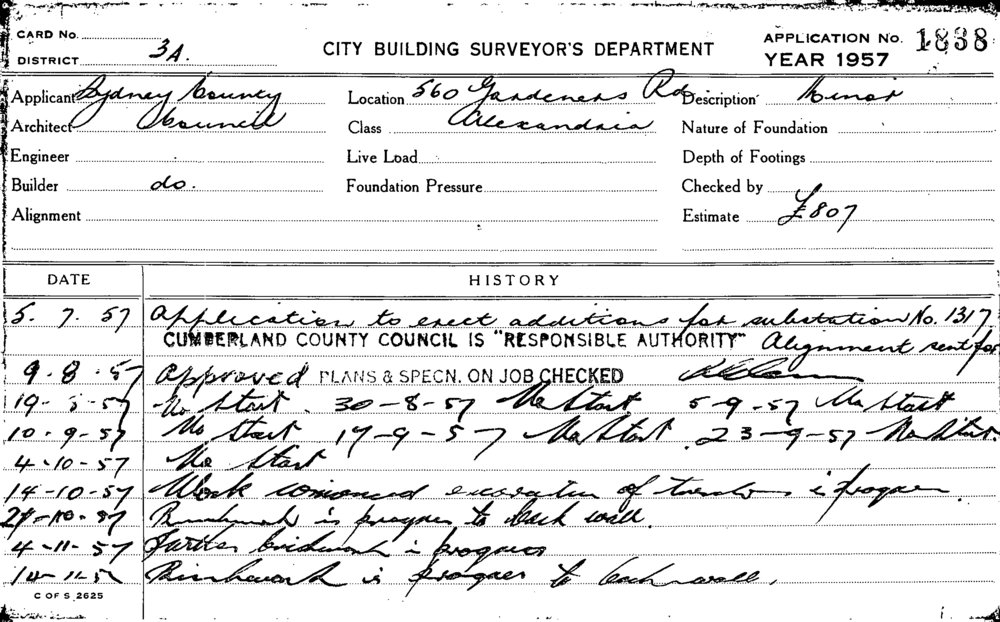 CARD No.
DISTRICT 3A.
CITY BUILDING SURVEYOR'S DEPARTMENT
APPLICATION No. 1838
YEAR 1957
Applicant Sydney County
Location 560 Gardeners Rd
Description Minor
Architect Council
Class Alexandria
Nature of Foundation
Engineer
Live Load
Depth of Footings
Builder do.
Foundation Pressure
Checked by
Alignment
Estimate £807
DATE HISTORY
5. 7. 57 Application to erect additions for substation No. 1317
CUMBERLAND COUNTY COUNCIL IS "RESPONSIBLE AUTHORITY" Alignment sent for
9. 8. 57 Approved PLANS & SPECN. ON JOB CHECKED
57 No Start. 30-8-57 No Start 5-9-57 No Start
10-9-57 No Start 17-9-57 No Start. 23-9-57 No Start.
4-10-57 No Start
14-10-57 Work comonced excavation of in progress.
-10-57 Brickwork is progress to back wall.
4-11-57 Further brickwork in progress
Brickwork is progress to back wall.
C OF S 2625